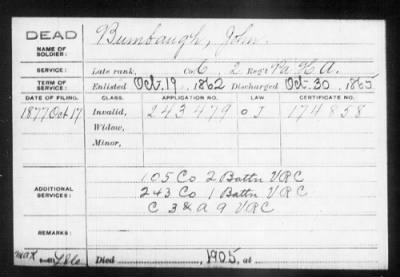 DEAD
NAME OF SOLDIER:
Bumbaugh, John.
SERVICE:
Late rank, Co. C 2 Reg't Pa. H.A.
TERM OF SERVICE:
Enlisted Oct. 19, 1862 Discharged Oct. 30, 1865
DATE OF FILING. CLASS. APPLICATION NO. LAW. CERTIFICATE NO.
1877 Oct 17 Invalid, 243479 174858
Widow,
Minor,
ADDITIONAL SERVICES:
105 Co 2 Battn V.R.C
243 Co 1 Battn VRC
C 3 & A 9 VRC
REMARKS:
Died 1905, at